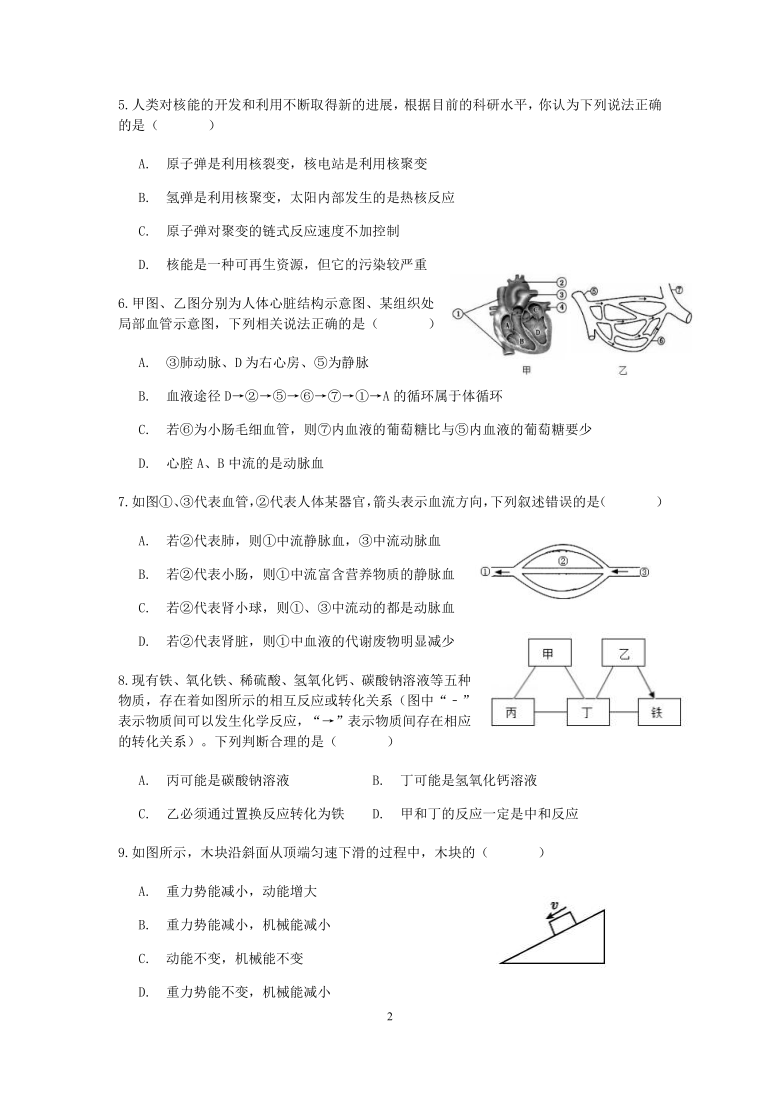 5.人类对核能的开发和利用不断取得新的进展,根据目前的科研水平,你认为下列说法正确
的是（　　）
A. 原子弹是利用核裂变，核电站是利用核聚变
B. 氢弹是利用核聚变，太阳内部发生的是热核反应
C. 原子弹对聚变的链式反应速度不加控制
D. 核能是一种可再生资源，但它的污染较严重
6.甲图、乙图分别为人体心脏结构示意图、某组织处
局部血管示意图，下列相关说法正确的是（　　）
① ② ③ ④ A B D ⑤ ⑥ ⑦
甲 乙
A. ③肺动脉、D为右心房、⑤为静脉
B. 血液途径 D→②→⑤→⑥→⑦→①→A 的循环属于体循环
C. 若⑥为小肠毛细血管，则⑦内血液的葡萄糖比与⑤内血液的葡萄糖要少
D. 心腔 A、B 中流的是动脉血
7.如图①、③代表血管,②代表人体某器官,箭头表示血流方向,下列叙述错误的是（　　）
A. 若②代表肺，则①中流静脉血，③中流动脉血
B. 若②代表小肠，则①中流富含营养物质的静脉血
C. 若②代表肾小球，则①、③中流动的都是动脉血
D. 若②代表肾脏，则①中血液的代谢废物明显减少
① ② ③
8.现有铁、氧化铁、稀硫酸、氢氧化钙、碳酸钠溶液等五种
物质，存在着如图所示的相互反应或转化关系（图中“﹣”
表示物质间可以发生化学反应，“→”表示物质间存在相应
的转化关系）。下列判断合理的是（　　）
甲 乙
丙 丁 铁
A. 丙可能是碳酸钠溶液 B. 丁可能是氢氧化钙溶液
C. 乙必须通过置换反应转化为铁 D. 甲和丁的反应一定是中和反应
9.如图所示，木块沿斜面从顶端匀速下滑的过程中，木块的（　　）
v
A. 重力势能减小，动能增大
B. 重力势能减小，机械能减小
C. 动能不变，机械能不变
D. 重力势能不变，机械能减小
2